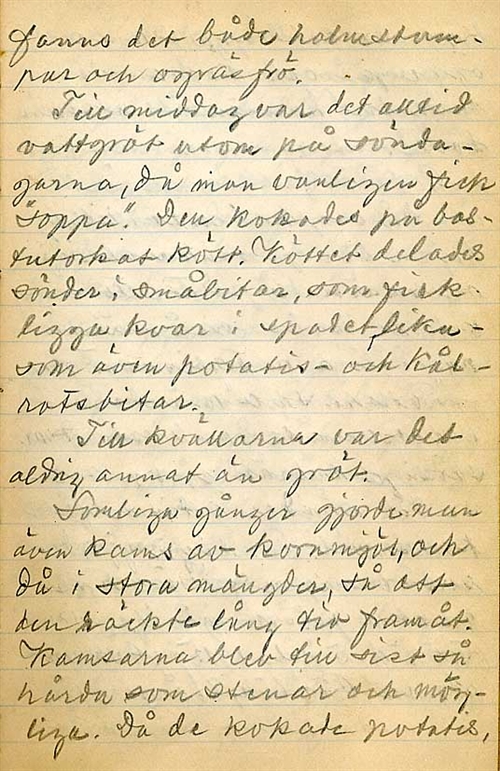 fanns det både halmstum-
par och ogräsfrö.
Till middag var det alltid
vattgröt utom på sönda-
garna, då man vanligen fick
"soppa". Den kokades på bas-
tutorkat kött. Köttet delades
sönder i småbitar, som fick
ligga kvar i spadet, lika-
som även potatis- och kål-
rotsbitar.
Till kvällarna var det
aldrig annat än gröt.
Somliga gånger gjorde man
även kams av kornmjöl, och
då i stora mängder, så att
den räckte lång tid framåt.
Kamsarna blev till sist så
hårda som stenar och mög-
liga. Då de kokade potatis,